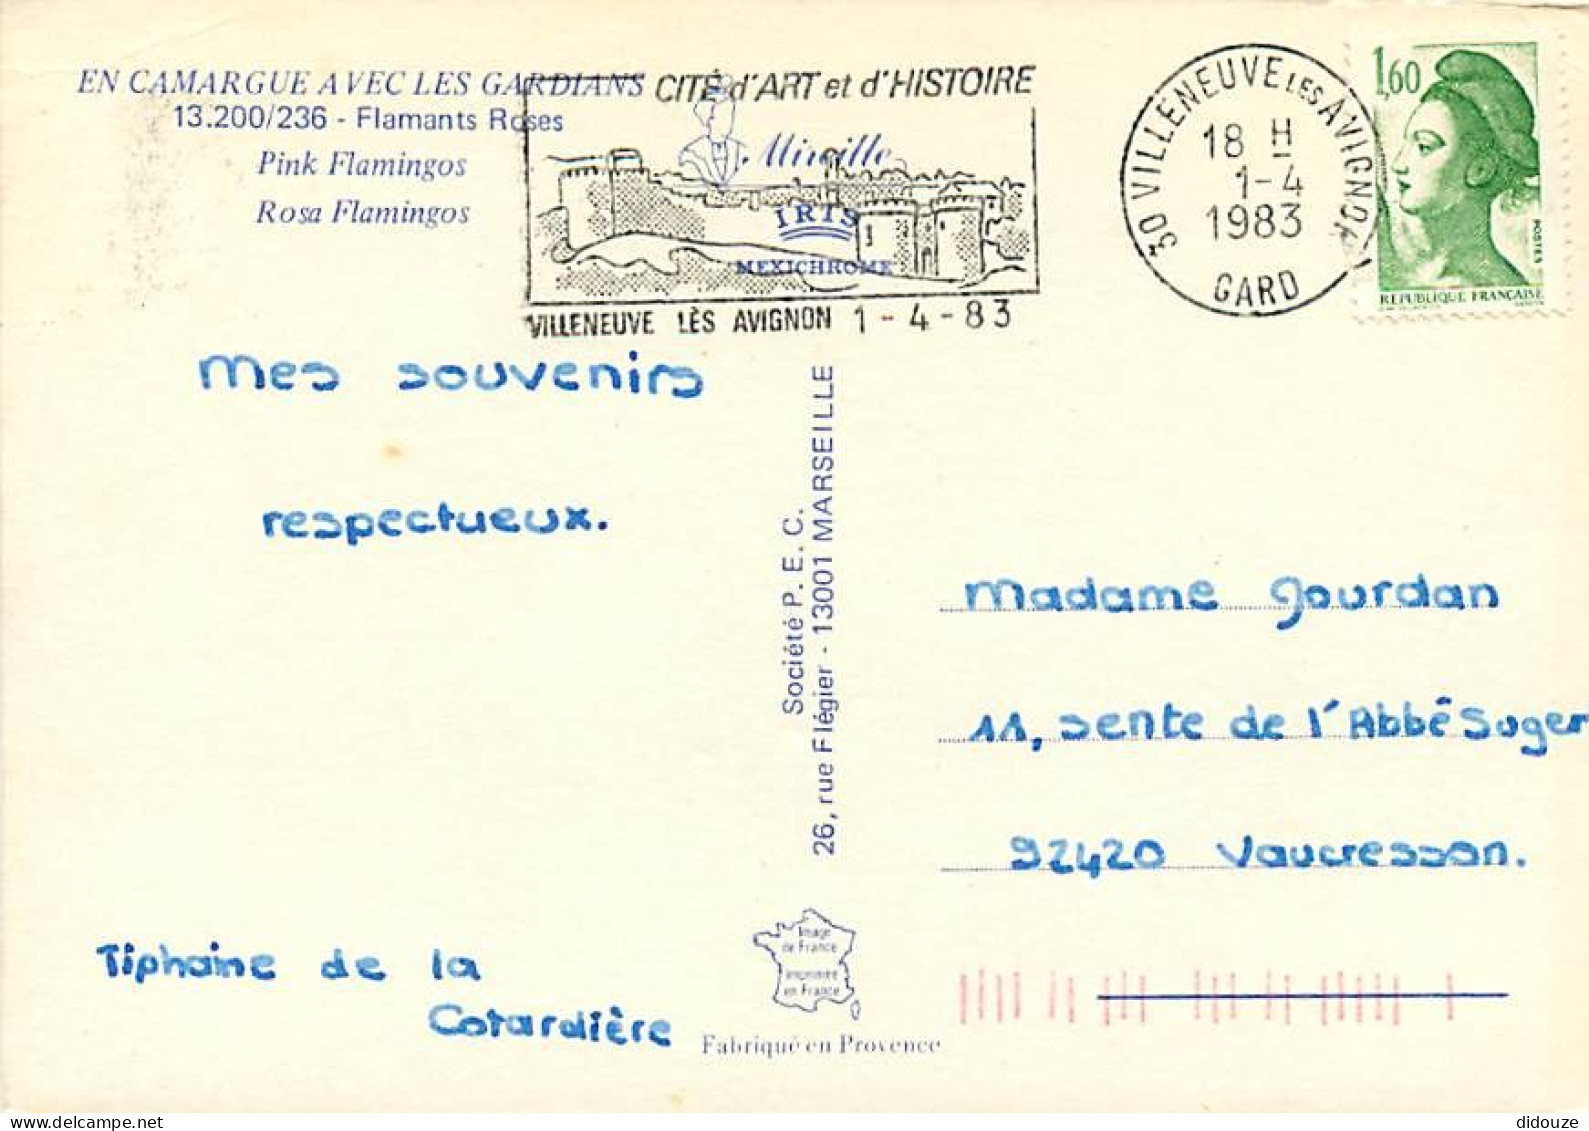 EN CAMARGUE AVEC LES GARDIANS
13.200/236 - Flamants Roses
Pink Flamingos
Rosa Flamingos
CITÉ d'ART et d'HISTOIRE
Mireille
IRIS
MEXICHROME
VILLENEUVE LÈS AVIGNON 1-4-83
30 VILLENEUVE LES AVIGNON
18 H
1-4
1983
GARD
1,60
POSTES
REPUBLIQUE FRANÇAISE
Mes souvenirs
respectueux.
Tiphaine de la
Cotardière
Société P. E. C.
26, rue Flégier - 13001 MARSEILLE
Madame Jourdan
11, sente de l'Abbé Suger
92420 Vaucresson.
Image
de France
imprimée
en France
Fabriqué en Provence
didouze